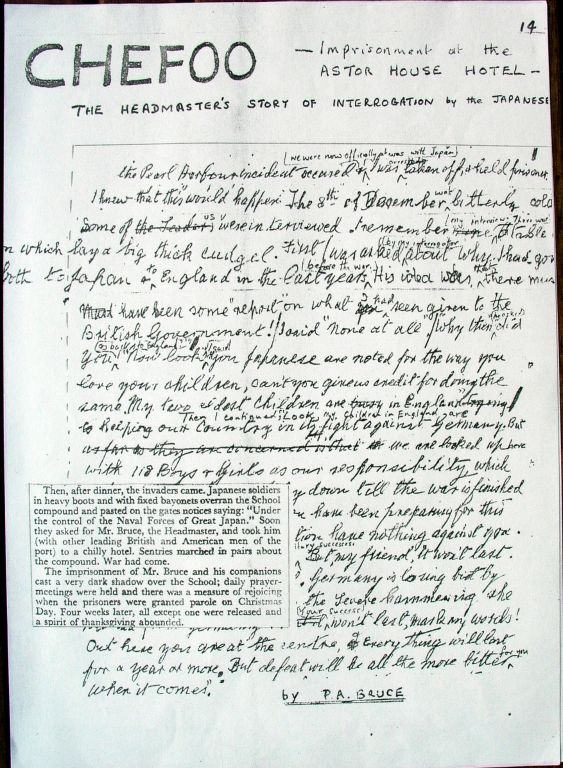 14
CHEFOO — Imprisonment at the
ASTOR HOUSE HOTEL —
THE HEADMASTER'S STORY OF INTERROGATION by the JAPANESE
(we were now officially at war with Japan)
the Pearl Harbour incident occured I was taken off & held prisoner
I knew that this would happen. The 8th of December, was bitterly cold
Some of the Leaders us were interviewed. I remember (my interview. There was a table
on which lay a big thick cudgel. First I was asked (by my interrogator about why I had gone
both to Japan & to England in the last year (before the war). His idea was that there must
Must have been some "report" on what I had seen given to the
British Government. I said "None at all". "Why then did
you go back to England?" "Now look" I said "you Japanese are noted for the way you
love your children, can't you give us credit for doing the
same. My two eldest children are in England
Then I continued "Look my children in England are
to helping our country in its fight against Germany. But
as far as they are concerned is that we are locked up here
with 118 Boys & Girls as our responsibility, which
down till the war is finished
have been preparing for this
have nothing against you.
But, my friend it won't last.
Germany is losing bit by
the severe hammering she
your success won't last, mark my words!
Out here you are at the centre, & Everything will last
for a year or more. But defeat will be all the more bitter for you
when it comes".
by P.A. BRUCE
Then, after dinner, the invaders came. Japanese soldiers
in heavy boots and with fixed bayonets overran the School
compound and pasted on the gates notices saying: "Under
the control of the Naval Forces of Great Japan." Soon
they asked for Mr. Bruce, the Headmaster, and took him
(with other leading British and American men of the
port) to a chilly hotel. Sentries marched in pairs about
the compound. War had come.
The imprisonment of Mr. Bruce and his companions
cast a very dark shadow over the School; daily prayer-
meetings were held and there was a measure of rejoicing
when the prisoners were granted parole on Christmas
Day. Four weeks later, all except one were released and
a spirit of thanksgiving abounded.